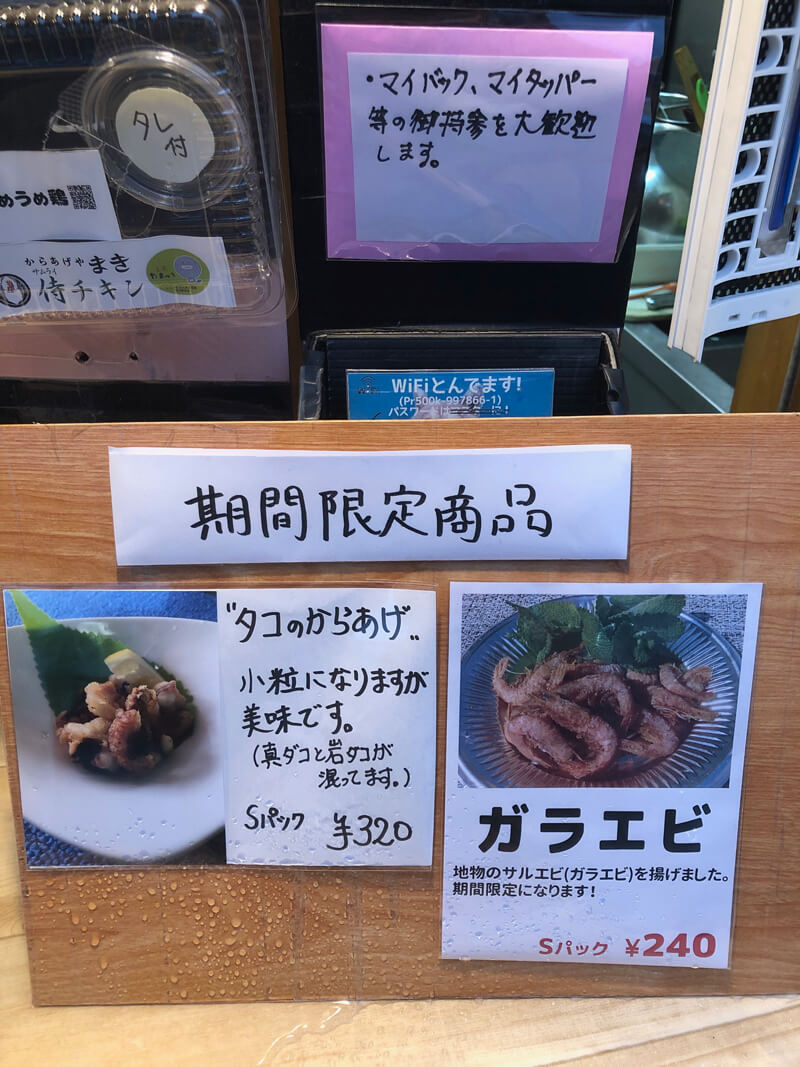 タレ
付
めうめ鶏
からあげや まき
サムライ
侍チキン
・マイバック、マイタッパー
等の御持参を大歓迎
します。
WiFiとんでます!
(Pr500k-997866-1)
パスワードは
期間限定商品
"タコのからあげ"
小粒になりますが
美味です。
(真ダコと岩タコが
混ってます。)
Sパック ¥320
ガラエビ
地物のサルエビ(ガラエビ)を揚げました。
期間限定になります!
Sパック ¥240